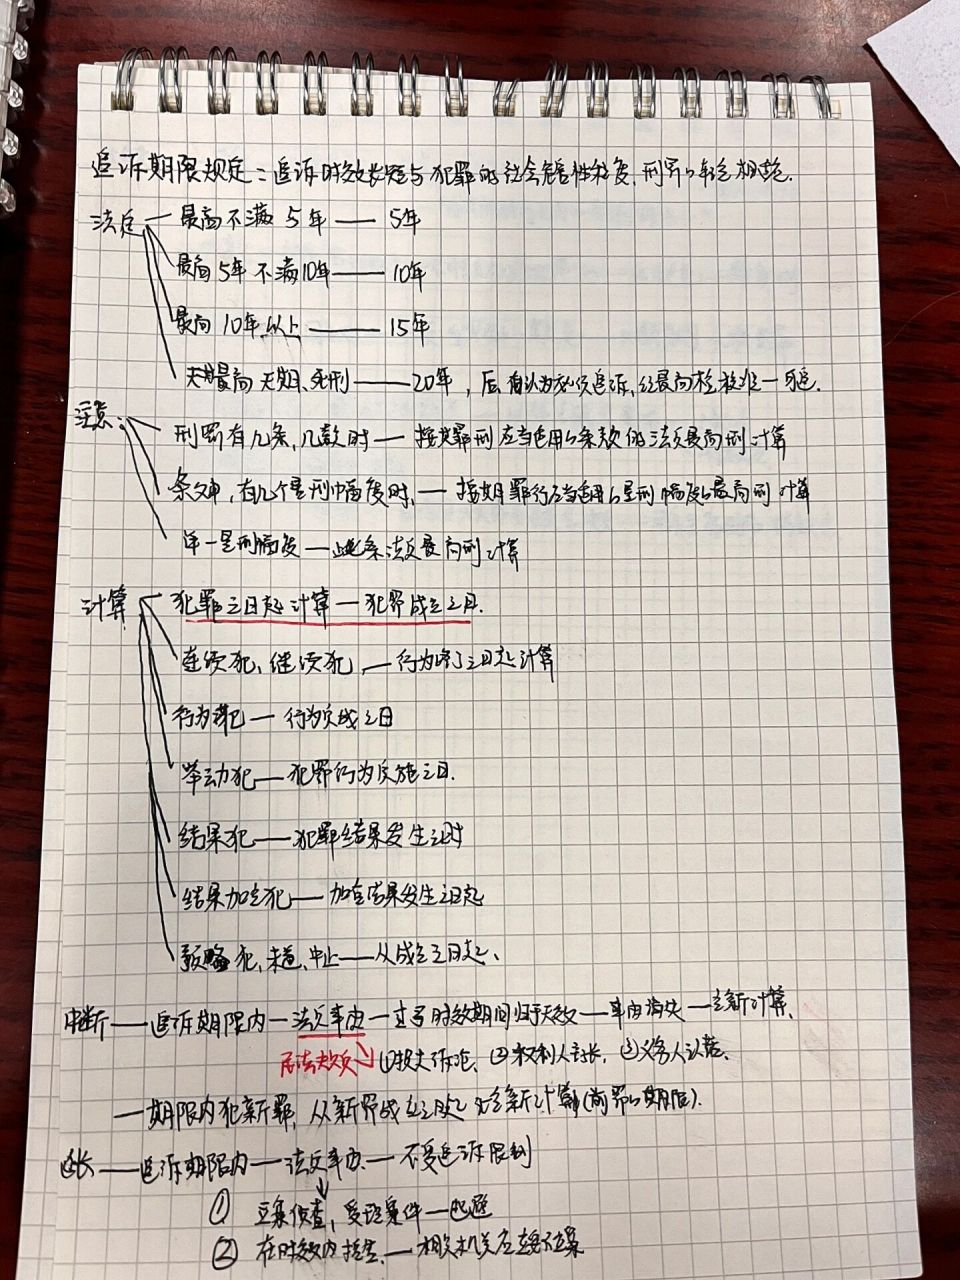 追诉期限规定：追诉时效长短与犯罪的社会危害性程度、刑罚轻重相适.
法定 最高不满5年——5年
最高5年不满10年——10年
最高10年以上——15年
最高无期、死刑——20年，后有认为必须追诉，经最高检核准—可追.
注意：
刑罚有几条、几款时—按其罪刑应当适用的条款的法定最高刑计算
条文中，有几个量刑幅度时，—按其罪行应当适用的量刑幅度的最高刑计算
单一量刑幅度—此条法定最高刑计算
计算 犯罪之日起计算—犯罪成立之日.
连续犯、继续犯，—行为终了之日起计算
行为犯—行为完成之日
举动犯—犯罪行为实施之日.
结果犯——犯罪结果发生之时
结果加重犯——加重结果发生之日起
预备犯、未遂、中止——从成立之日起、
中断——追诉期限内—法定事由—过了时效期间归于无效—事由消失—重新计算.
①提出诉讼、②权利人主张，③义务人认诺、
—期限内犯新罪，从新罪成立之日起重新计算(前罪的期限).
延长——追诉期限内—法定事由—不受追诉限制
① 立案侦查，受理案件—逃避
② 在时效内控告—相关机关应立案不立案